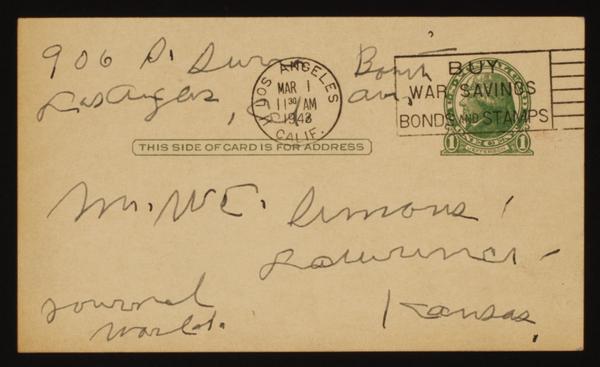 906 S.
Los Angeles,
LOS ANGELES
MAR 1
11 30 AM
1943
CALIF.
BUY
WAR SAVINGS
BONDS AND STAMPS
THIS SIDE OF CARD IS FOR ADDRESS
1 1
Mr. W.C. Simons
Lawrence
Kansas,
Journal
World.